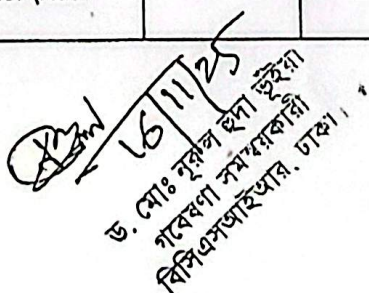 16/11/25
ড. মোঃ নূরুল হুদা ভূঁইয়া
গবেষণা সমন্বয়কারী
বিসিএসআইআর, ঢাকা।